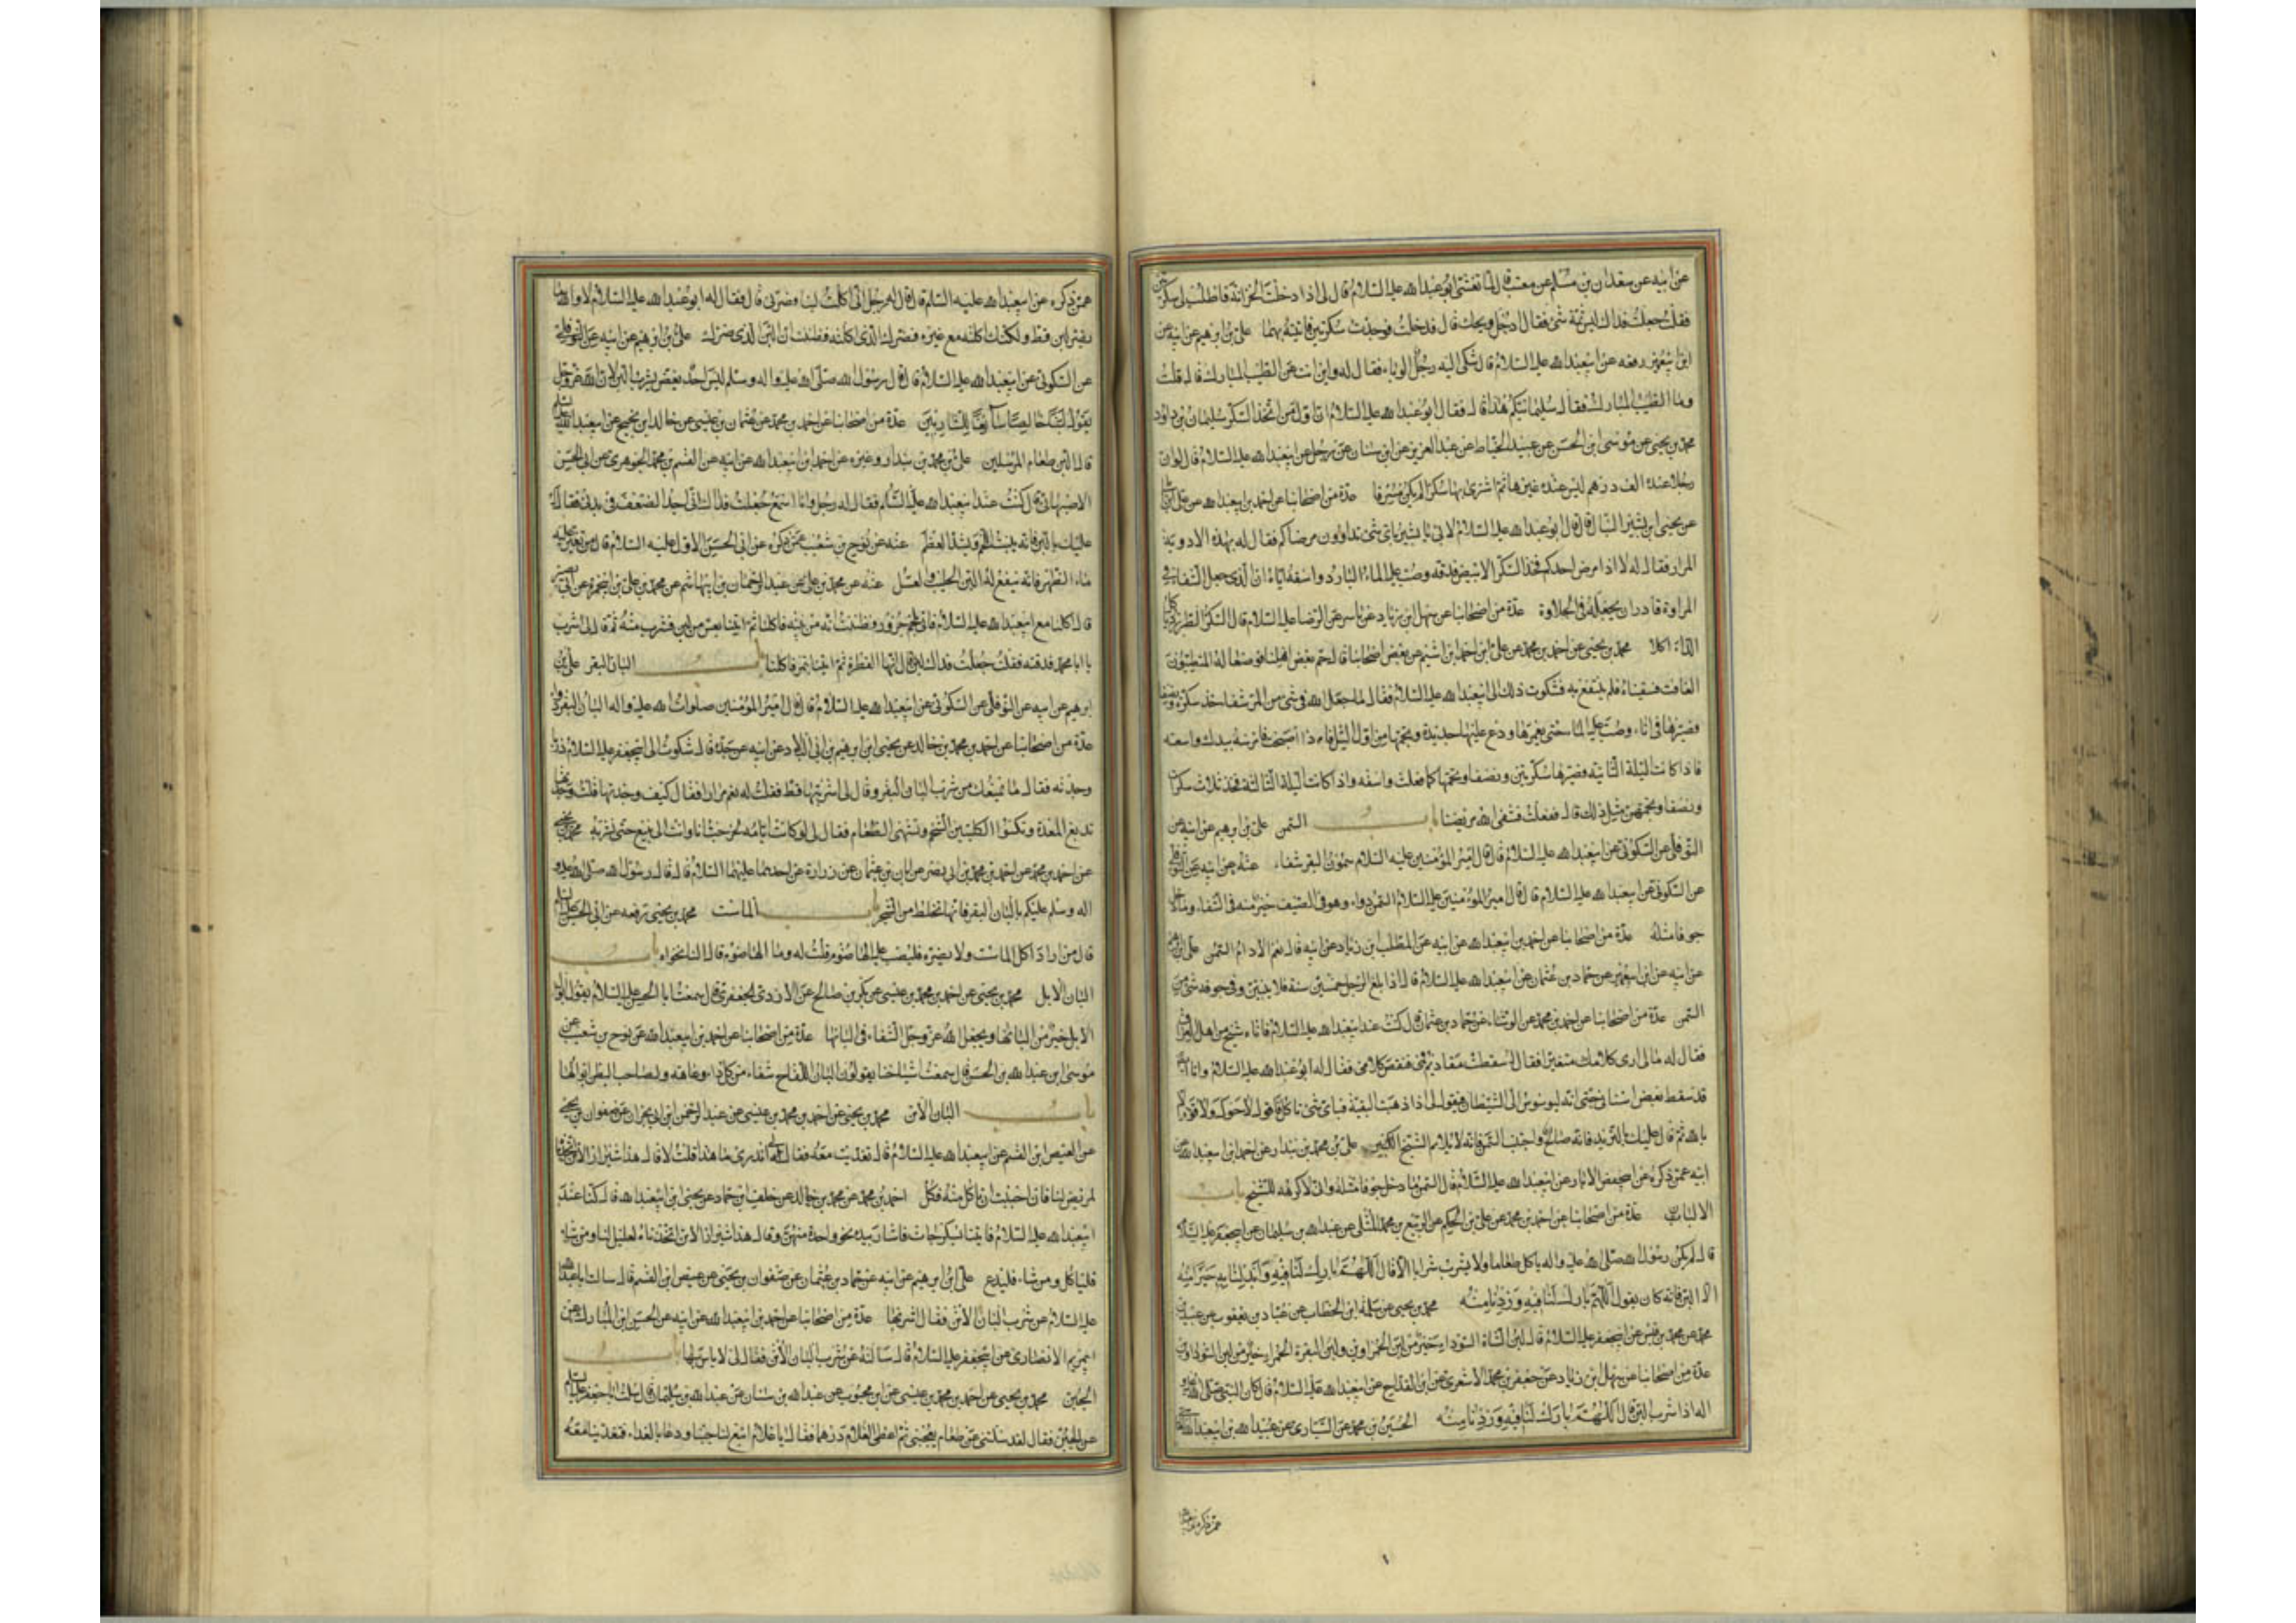 عن ابيه عن سعدان بن مسلم عن معتب قال لما تعشى ابو عبدا لله عليه السلام قال لى اذا دخلت الخزانة فاطلب لى سكرتين
فقلت جعلت فداك ليس ثمة شئ فقال ادخل ويحك قال فدخلت فوجدت سكرتين فاتيته بهما علىّ بن ابرهيم عن ابيه عن
ابن ابيعمير رفعه عن ابيعبدا لله عليه السلام قال شكى اليه رجل الوباء فقال له واين انت عن الطيب المبارك قال قلت
وما الطيب المبارك فقال سليمانيكم هذا قال فقال ابو عبدا لله عليه السلام ان اول من اتخذ السكر سليمان بن داود
محمد بن يحيى عن موسى ابن الحسن عن عبيد الخياط عن عبد العزيز عن ابن سنان عن رجل عن ابيعبدا لله عليه السلام قال لو ان
رجلا عنده الف درهم ليس عنده غيرها ثم اشترى بها سكرا لم يكن مسرفا عدة من اصحابنا عن احمد بن ابيعبدا لله عن
عن يحيى ابن بشير النبال قال قال ابو عبدا لله عليه السلام لابى يا بشير باى شئ تداوون مرضاكم فقال له بهذه الادوية
المرار فقال له لا اذا مرض احدكم فخذ السكر الابيض فدقه وصب عليه الماء البارد واسقه اياه ان الذى جعل الشفاء فى
المراوة قادر ان يجعله فى الحلاوة عدة من اصحابنا عن سهل ابن زياد عن ياسر عن الرضا عليه السلام قال السكر الطبرزد ياكل
الداء اكلا محمد بن يحيى عن احمد بن محمد عن على ابن احمد ابن اشيم عن بعض اصحابنا قال حم بعض اهلنا فوصفوا له المتطببون
الغافث فسقيناه فلم ينتفع به فشكوت ذلك الى ابيعبدا لله عليه السلام فقال ما جعل الله فى شئ من المر شفا خذ سكرة ونصفا
فصيرها فى اناء وصب عليها الماء حتى يغمرها وضع عليها حديدة ونجمها من اول الليل فاذا اصبحت فامرسها بيدك واسقه
فاذا كانت الليلة الثانيه فصيرها سكرتين ونصفا ونجمها كما فعلت واسقه واذا كانت ليلة الثالثة فخذ ثلاث سكرات
ونصفا ونجمهن مثل ذلك قال ففعلت فشفى الله مريضنا باب السمن على بن ابرهيم عن ابيه عن
النوفلى عن السكونى عن ابيعبدا لله عليه السلام قال قال امير المؤمنين عليه السلام سمون البقر شفاء عنه عن ابيه عن النوفلى
عن السكونى عن ابيعبدا لله عليه السلام قال قال امير المؤمنين عليه السلام السمن دواء وهو فى الصيف خير منه فى الشتاء وما دخل
جوفا مثله عدة من اصحابنا عن احمد بن ابيعبدا لله عن ابيه عن المطلب ابن زياد عن ابيه قال نعم الادام السمن على بن ابرهيم
عن ابيه عن ابن ابيعمير عن حماد بن عثمان عن ابيعبدا لله عليه السلام قال اذا بلغ الرجل خمسين سنة فلا يبيتن وفى جوفه شئ من
السمن عدة من اصحابنا عن احمد بن محمد عن الوشاء عن حماد بن عثمان قال كنت عند ابيعبدا لله عليه السلام فاتاه شيخ من اهل العراق
فقال له ما لى ارى كلامك متغيرا فقال له سقطت مقاديم فمى فنقص كلامى فقال له ابو عبدا لله عليه السلام وانا ايضا
قد سقط بعض اسنانى حتى انه ليوسوس الى الشيطان فيقول لى اذا ذهبت البقية فباى شئ تاكل فاقول لا حول ولا قوة الا
بالله ثم قال عليك بالثريد فانه صالح واجتنب السمن فانه لا يلايم الشيخ الكبير على بن محمد بن بندار عن احمد ابن ابيعبدا لله عن
ابيه عمن ذكره عن ابيحفص الابار عن ابيعبدا لله عليه السلام قال السمن ما دخل جوفا مثله وانى لاكرهه للشيخ باب
الالبان عدة من اصحابنا عن احمد بن محمد عن على بن الحكم عن الربيع بن محمد المسلى عن عبدا لله بن سليمان عن ابيجعفر عليه السلام
قال لم يكن رسول الله صلى الله عليه واله ياكل طعاما ولا يشرب شرابا الا قال اللهم بارك لنا فيه وابدلنا به خيرا منه
الا اللبن فانه كان يقول اللهم بارك لنا فيه وزدنا منه محمد بن يحيى عن سلمة ابن الخطاب عن عباد بن يعقوب عن عبيد بن
محمد عن محمد بن قيس عن ابيجعفر عليه السلام قال لبن الشاة السوداء خير من لبن الحمراوين ولبن البقرة الحمراء خير من لبن السوداوين
عدة من اصحابنا عن سهل ابن زياد عن جعفر بن محمد الاشعرى عن ابن القداح عن ابيعبدا لله عليه السلام قال كان النبى صلى الله عليه
اله اذا شرب اللبن قال اللهم بارك لنا فيه وزدنا منه الحسين بن محمد عن السيارى عن عبيدا لله بن ابيعبدا لله
عمن ذكره عن
عمن ذكره عن ابيعبدا لله عليه السلم قال قال له رجل انى اكلت لبنا فضرنى قال فقال له ابو عبدا لله عليه السلام لا والله ما
يضر لبن قط ولكنك اكلته مع غيره فضرك الذى اكلته فظننت ان اللبن الذى ضرك على بن ابرهيم عن ابيه عن النوفلى
عن السكونى عن ابيعبدا لله عليه السلام قال قال رسول الله صلى الله عليه واله وسلم ليس احد يغص بشرب اللبن لان الله عز وجل
يقول لبنا خالصا سائغا للشاربين عدة من اصحابنا عن احمد بن محمد عن عثمان بن عيسى عن خالد ابن نجيح عن ابيعبدا لله عليه السلم
قال اللبن طعام المرسلين على بن محمد بن بندار وغيره عن احمد ابن ابيعبدا لله عن ابيه عن القسم بن محمد الجوهرى عن ابى الحسن
الاصبهانى قال كنت عند ابيعبدا لله عليه السلم فقال له رجل وانا اسمع جعلت فداك انى اجد الضعف فى بدنى فقال له
عليك باللبن فانه ينبت اللحم ويشد العظم عنه عن نوح بن شعيب عمن ذكره عن ابى الحسن الاول عليه السلام قال من تغير عليه
ماء الظهر فانه ينفع له اللبن الحليب والعسل عنه عن محمد بن على عن عبد الرحمان بن ابيهاشم عن محمد بن على بن ابيحمزة عن ابى بصير
قال اكلنا مع ابيعبدا لله عليه السلام فاتى بلحم جزور وظننت انه من بيته فاكلنا ثم اتينا بعس من لبن فشرب منه ثم قال لى اشرب
يا ابا محمد فذقته فقلت جعلت فداك لبن قال انها الفطرة ثم اتينا بتمر فاكلنا باب البان البقر على بن
ابرهيم عن ابيه عن النوفلى عن السكونى عن ابيعبدا لله عليه السلام قال قال امير المؤمنين صلوات الله عليه واله البان البقر دواء
عدة من اصحابنا عن احمد بن محمد بن خالد عن يحيى ابن ابرهيم بن ابى البلاد عن ابيه عن جده قال شكوت الى ابيجعفر عليه السلام ذربا
وجدته فقال ما يمنعك من شرب البان البقر وقال لى اشربتها قط فقلت له نعم مرارا فقال كيف وجدتها فقلت وجدتها
تدبغ المعدة وتكسوا الكليتين الشحم وتشهى الطعام فقال لى لو كانت ايامه لخرجت انا وانت الى ينبع حتى نشربه محمد بن يحيى
عن احمد بن محمد عن احمد بن محمد بن ابى نصر عن ابان بن عثمان عن زرارة عن احدهما عليهما السلام قال قال رسول الله صلى الله عليه و
اله وسلم عليكم بالبان البقر فانها تخلط من الشجر باب الماست محمد بن يحيى رفعه عن ابى الحسن عليه السلم
قال من اراد اكل الماست ولا يضره فليصب عليه الهاضوم قلت له وما الهاضوم قال النانخواه باب
البان الابل محمد بن يحيى عن احمد بن محمد بن عيسى عن بكر بن صالح عن الجعفرى قال سمعت ابا الحسن عليه السلام يقول ابوال
الابل خير من البانها ويجعل الله عز وجل الشفاء فى البانها عدة من اصحابنا عن احمد بن ابيعبدا لله عن نوح بن شعيب عن
موسى ابن عبدا لله بن الحسن قال سمعت اشياخنا يقولون البان اللقاح شفاء من كل داء وعاهة ولصاحب البطن ابوالها
باب البان الاتن محمد بن يحيى عن احمد بن محمد بن عيسى عن عبد الرحمن ابن ابى نجران عن صفوان بن يحيى
عن العيص ابن القسم عن ابيعبدا لله عليه السلام قال تغديت معه فقال لى اتدرى ما هذا قلت لا قال هذا شيراز الاتن اتخذناه
لمريض لنا فان احببت ان تاكل منه فكل احمد بن محمد عن محمد بن خالد عن خلف ابن حماد عن يحيى ابن عبدا لله قال كنا عند
ابيعبدا لله عليه السلام فاتينا بسكرجات فاشار بيده نحو واحدة منهن وقال هذا شيراز الاتن اتخذناه لعليل لنا ومن شاء
فلياكل ومن شاء فليدع على ابن ابرهيم عن ابيه عن حماد بن عثمان عن صفوان بن يحيى عن عيص ابن القسم قال سالت ابا عبدا لله
عليه السلام عن شرب البان الاتن فقال اشربها عدة من اصحابنا عن احمد بن ابيعبدا لله عن ابيه عن الحسين ابن المبارك عن
ابيمريم الانصارى عن ابيجعفر عليه السلام قال سالته عن شرب البان الاتن فقال لى لا باس بها باب
الجبن محمد بن يحيى عن احمد بن محمد بن عيسى عن ابن محبوب عن عبدا لله بن سنان عن عبدا لله بن سليمان قال سالت ابا جعفر عليه السلم
عن الجبن فقال لقد سالتنى عن طعام يعجبنى ثم اعطى الغلام درهما فقال يا غلام ابتع لنا جبنا ودعا بالغداء فتغدينا معه